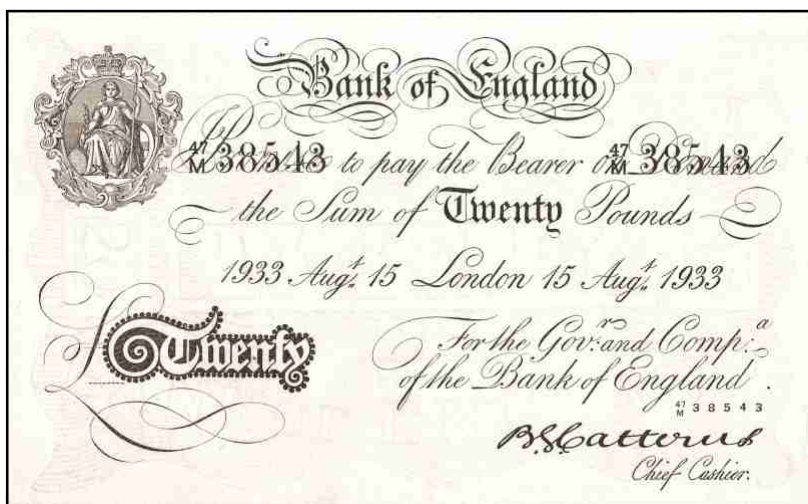 Bank of England
47 M 38543 to pay the Bearer on Demand 47 M 38543
the Sum of Twenty Pounds
1933 Augt. 15 London 15 Augt. 1933
£Twenty
For the Govr. and Compa.
of the Bank of England.
47 M 38543
B.G. Catterns
Chief Cashier.